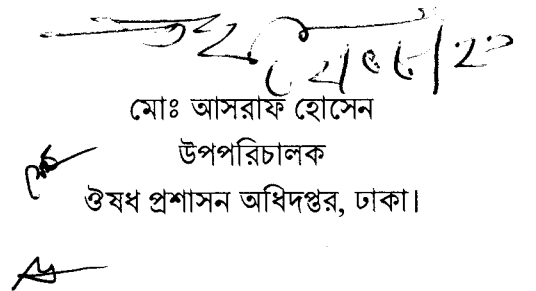 মোঃ আসরাফ হোসেন
উপপরিচালক
ঔষধ প্রশাসন অধিদপ্তর, ঢাকা।